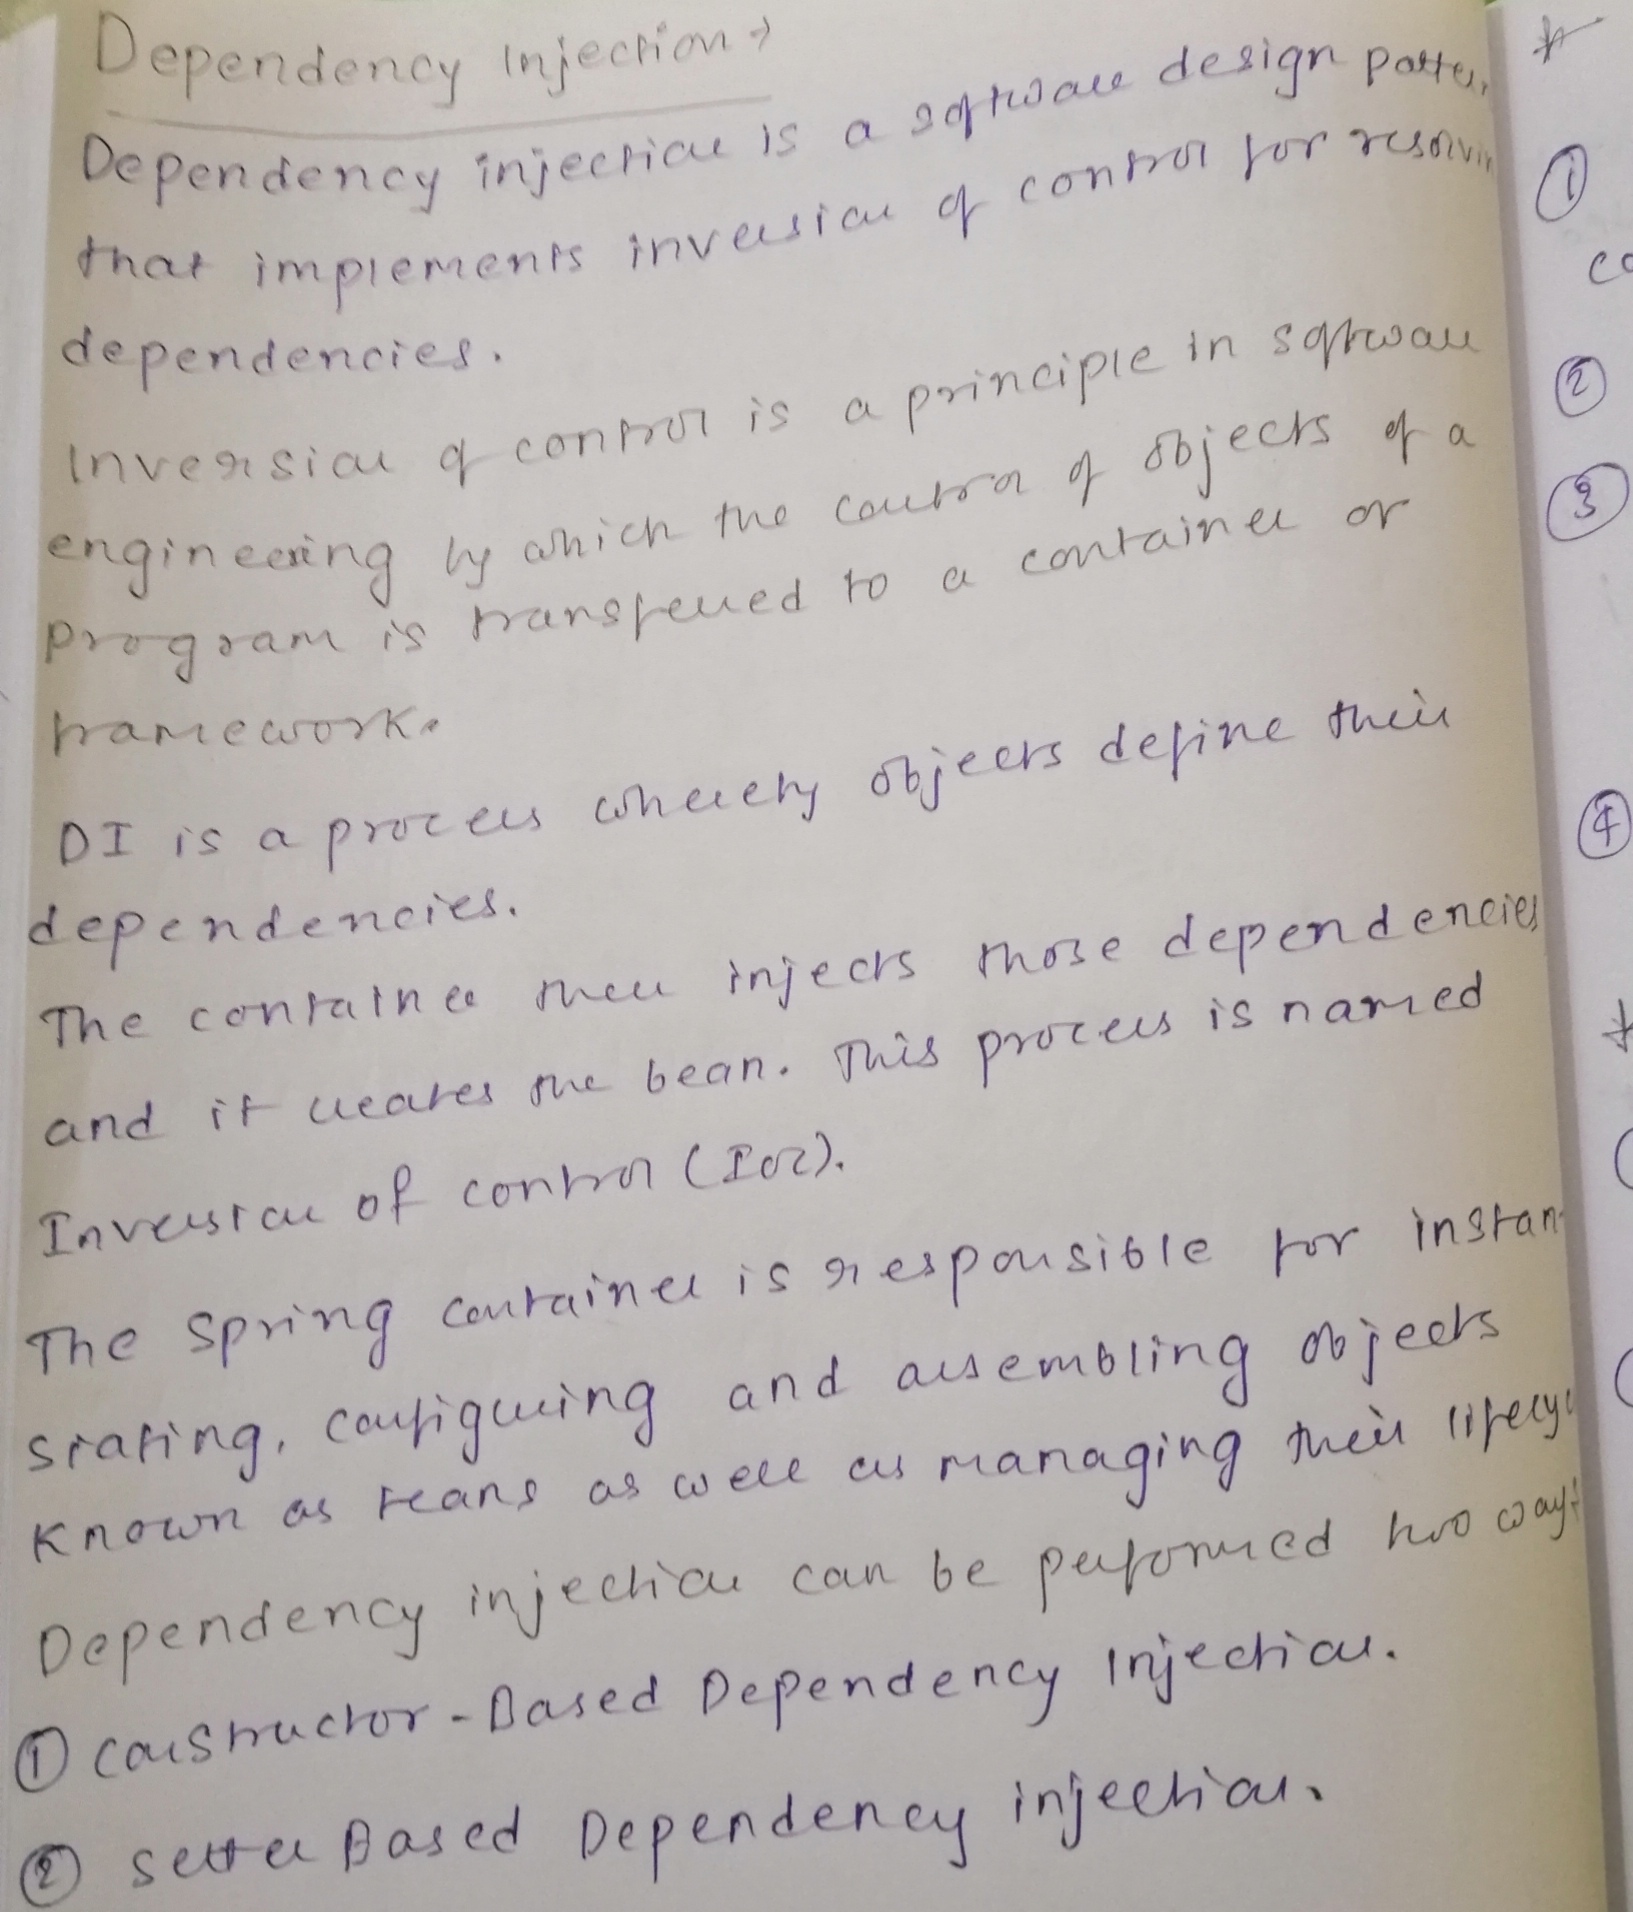 Dependency Injection →
Dependency injection is a software design patter
that implements inversion of control for resolvin
dependencies.
Inversion of control is a principle in software
engineering by which the control of objects of a
program is transferred to a container or
framework.
DI is a process whereby objects define their
dependencies.
The container then injects those dependencies
and it creates the bean. This process is named
Inversion of control (IOC).
The Spring container is responsible for instan-
stating, configuring and assembling objects
known as beans as well as managing their lifecyc
Dependency injection can be performed two ways
① Constructor-Based Dependency Injection.
② setter Based Dependency injection.
*
①
co
②
③
④
*